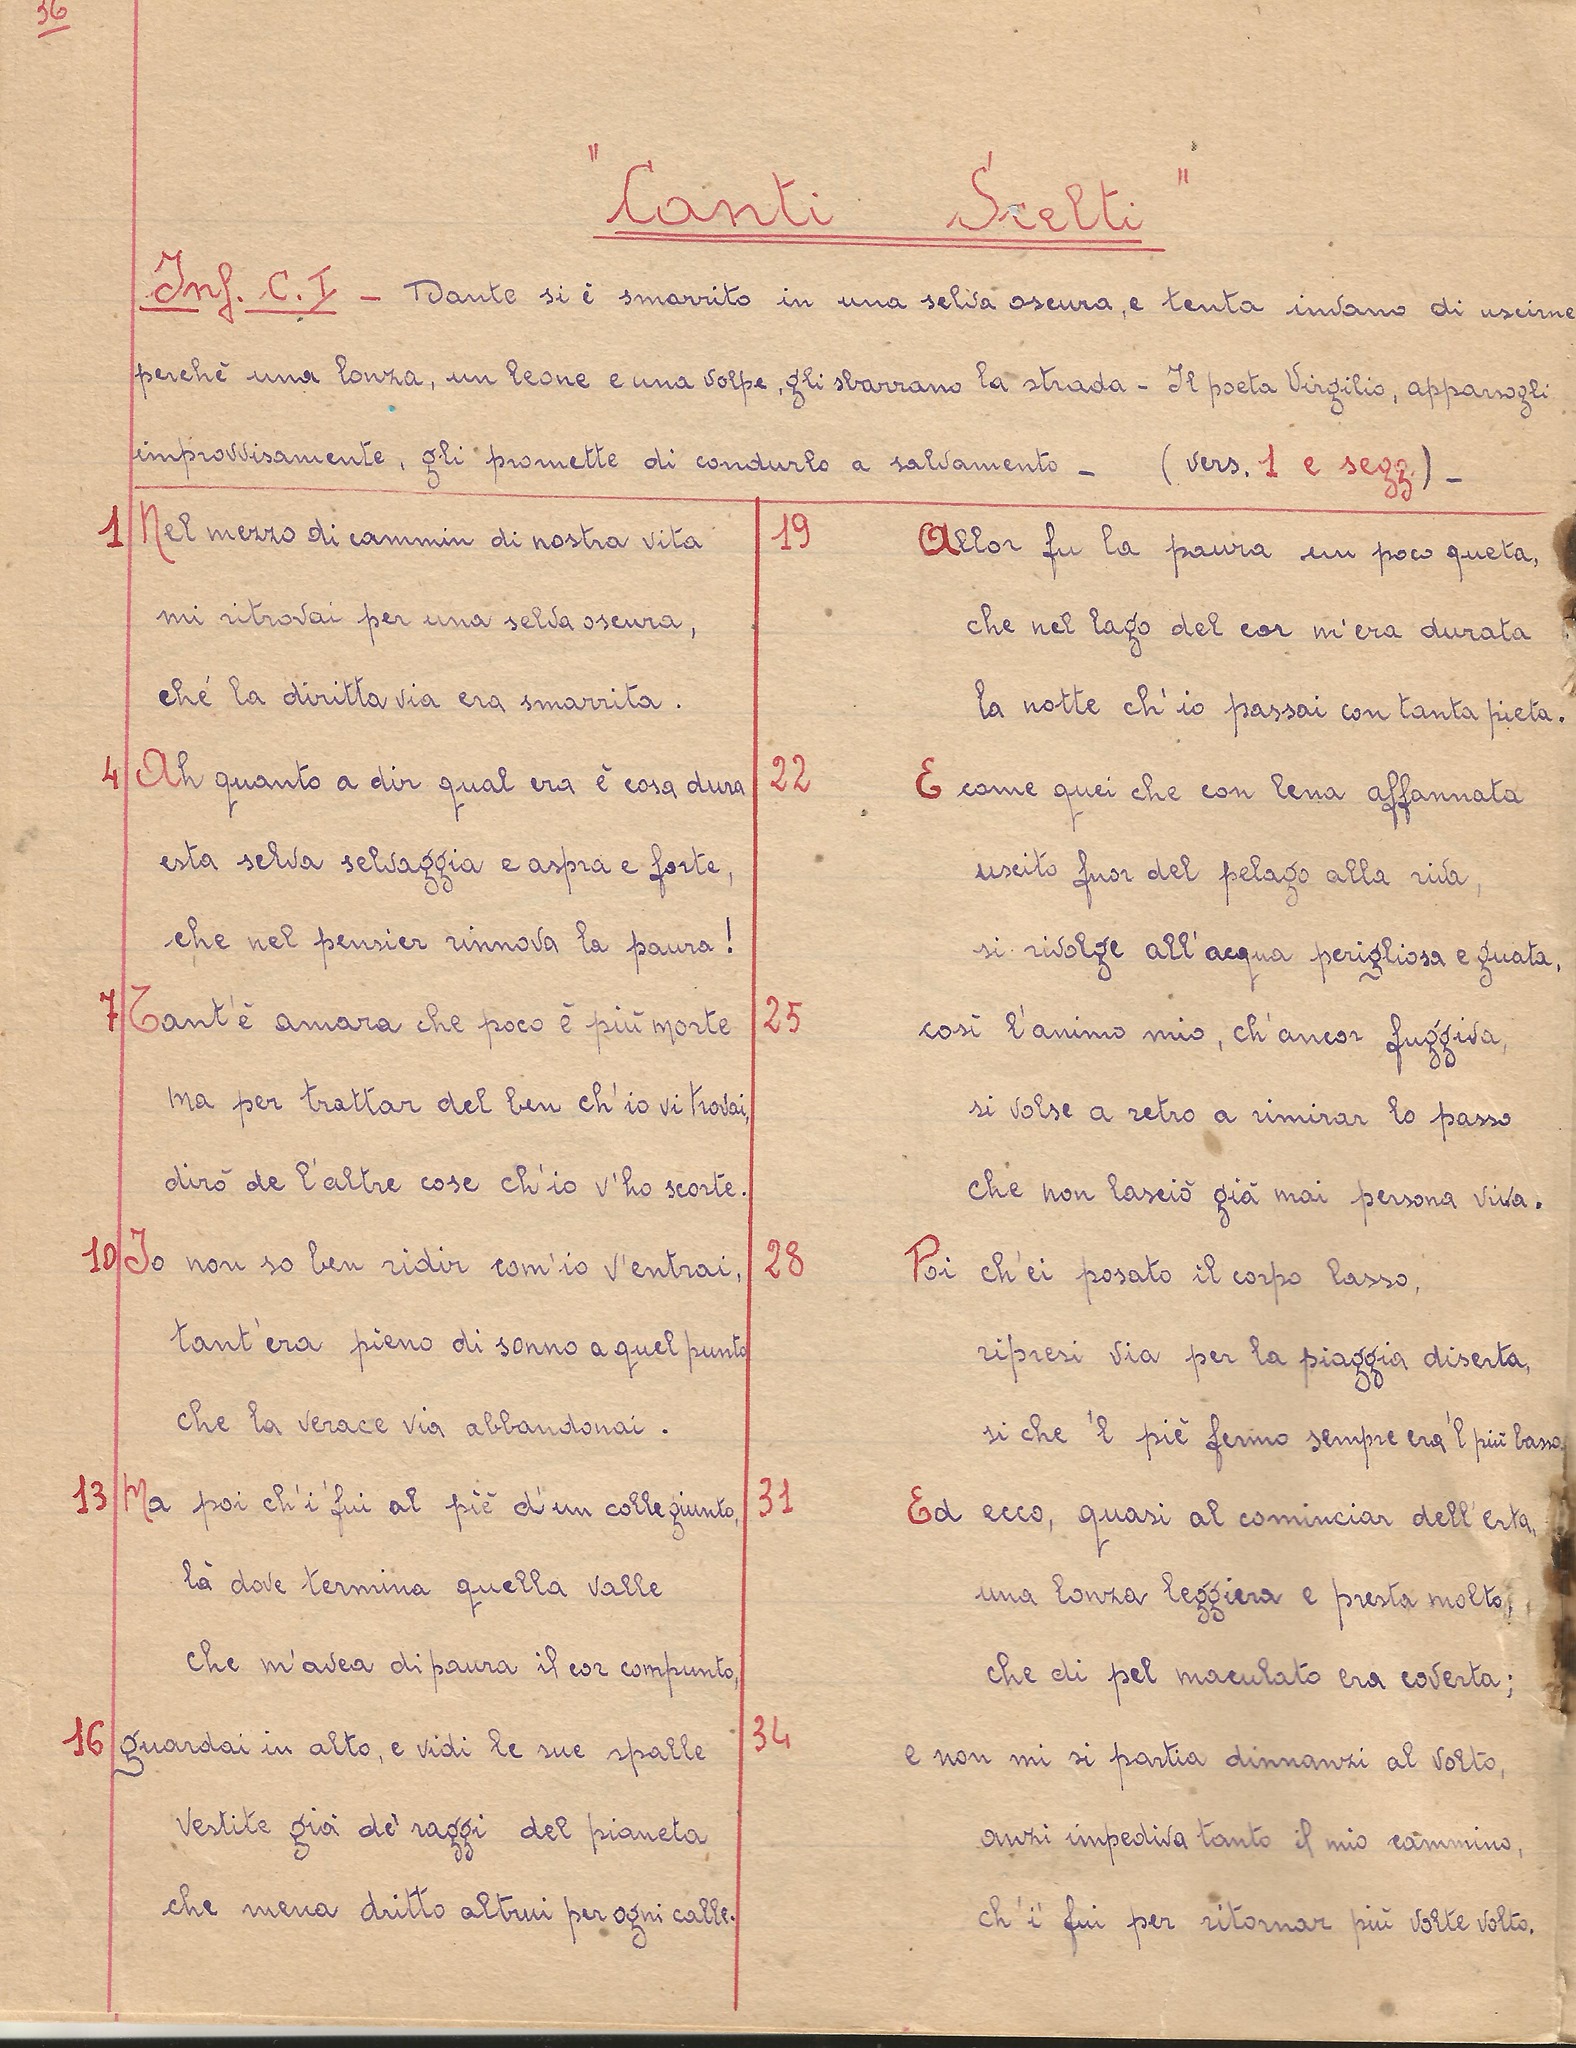 36
"Canti Scelti"
Inf. C. I – Dante si è smarrito in una selva oscura, e tenta invano di uscirne
perchè una lonza, un leone e una volpe, gli sbarrano la strada – Il poeta Virgilio, apparsogli
improvvisamente, gli promette di condurlo a salvamento – (vers. 1 e segg.) –
1 Nel mezzo di cammin di nostra vita
mi ritrovai per una selva oscura,
ché la diritta via era smarrita.
4 Ah quanto a dir qual era è cosa dura
esta selva selvaggia e aspra e forte,
che nel pensier rinnova la paura!
7 Tant'è amara che poco è più morte
ma per trattar del ben ch'io vi trovai,
dirò de l'altre cose ch'io v'ho scorte.
10 Io non so ben ridir com'io v'entrai,
tant'era pieno di sonno a quel punto
che la verace via abbandonai.
13 Ma poi ch'i' fui al piè d'un colle giunto,
là dove termina quella valle
che m'avea di paura il cor compunto,
16 guardai in alto, e vidi le sue spalle
vestite già de' raggi del pianeta
che mena dritto altrui per ogni calle.
19 Allor fu la paura un poco queta,
che nel lago del cor m'era durata
la notte ch'io passai con tanta pieta.
22 E come quei che con lena affannata
uscito fuor del pelago alla riva,
si rivolge all'acqua perigliosa e guata,
25 così l'animo mio, ch'ancor fuggiva,
si volse a retro a rimirar lo passo
che non lasciò già mai persona viva.
28 Poi ch'ei posato il corpo lasso,
ripresi via per la piaggia diserta,
si che 'l piè fermo sempre era 'l più basso.
31 Ed ecco, quasi al cominciar dell'erta,
una lonza leggiera e presta molto,
che di pel maculato era coverta;
34 e non mi si partia dinnanzi al volto,
anzi impediva tanto il mio cammino,
ch'i' fui per ritornar più volte volto.